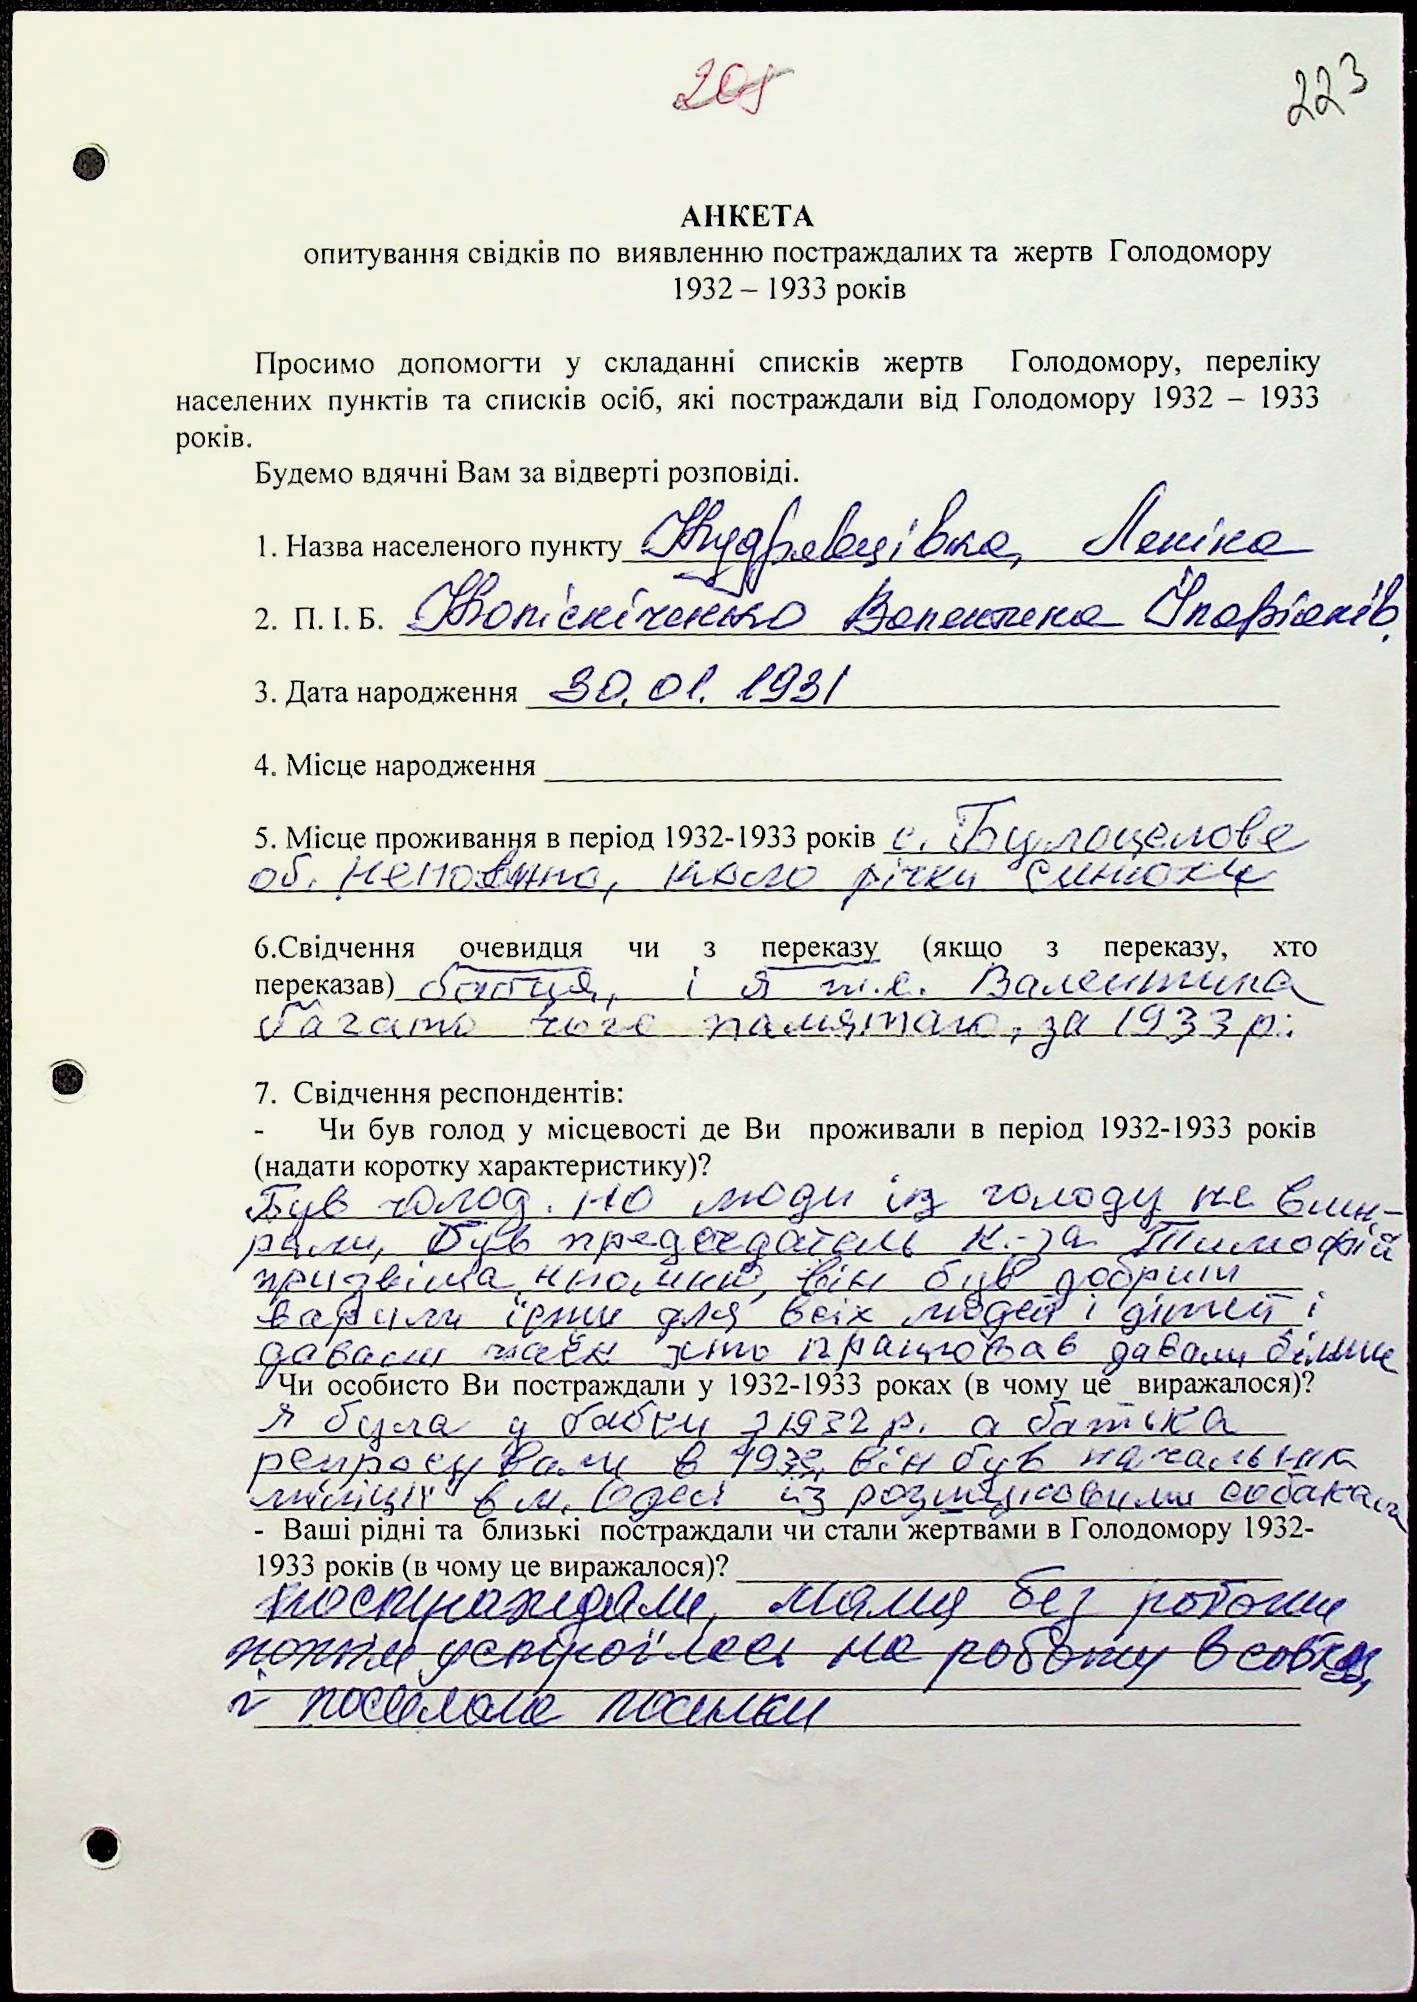 205
223
АНКЕТА
опитування свідків по виявленню постраждалих та жертв Голодомору
1932 – 1933 років
Просимо допомогти у складанні списків жертв Голодомору, переліку
населених пунктів та списків осіб, які постраждали від Голодомору 1932 – 1933
років.
Будемо вдячні Вам за відверті розповіді.
1. Назва населеного пункту Кудрявцівка, Леніна
2. П. І. Б. Валентина
3. Дата народження 30.01.1931
4. Місце народження
5. Місце проживання в період 1932-1933 років с.
об. коло річки Синюхи
6.Свідчення очевидця чи з переказу (якщо з переказу, хто
переказав) бабця, і я т.е. Валентина
багато чого памятаю, за 1933 р.
7. Свідчення респондентів:
- Чи був голод у місцевості де Ви проживали в період 1932-1933 років
(надати коротку характеристику)?
Був голод. но люди із голоду не вми-
рали, Був председатель к.-за Тимофій
він був добрим
варили їжи для всіх людей і дітей і
давали паёк хто працював давали більше
- Чи особисто Ви постраждали у 1932-1933 роках (в чому це виражалося)?
я була у бабки з 1932 р. а батька
в він був начальник
міліції в м. Одесі із розшуковими собаками
- Ваші рідні та близькі постраждали чи стали жертвами в Голодомору 1932-
1933 років (в чому це виражалося)?
постраждали, мама без роботи
на роботу в
і посилала посилки